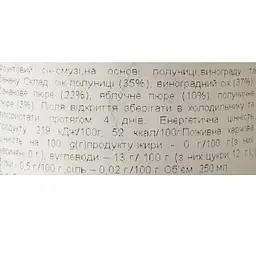 фруктовий сік-смузі,на основі полуниці,винограду та
банану Склад: сік полуниці (35%), виноградний сік (37%)
бананове пюре (22%), яблучне пюре (10%), полуничне
пюре (3%). Після відкриття зберігати в холодильнику та
використати протягом 4 днів. Енергетична цінність
продукту 219 кДж/100г, 52 ккал/100г.Поживна харчова
цінність на 100 g(г)продукту:жири - 0 г/100 г(з них
насичені 0 г), вуглеводи – 13 г/ 100 г (з них цукри 12 г),
- 0,5 г/100 г,сіль – 0,02 г/100 г. Об'єм 250 мл